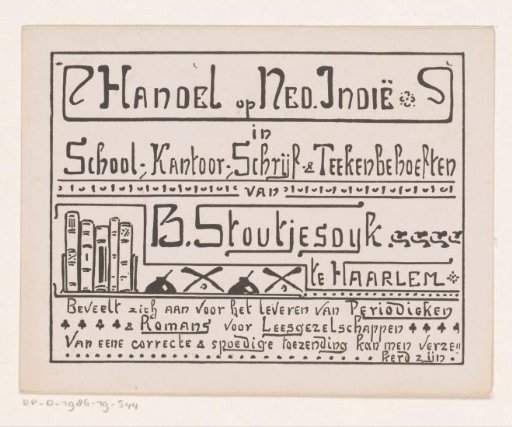 Handel op Ned. Indië
in
School-, Kantoor-, Schrijf- & Teekenbehoeften
van
B. Stoutjesdyk
te Haarlem
Beveelt zich aan voor het leveren van Periodieken
& Romans voor Leesgezelschappen
Van eene correcte & spoedige toezending kan men verze=
kerd zijn.
RP-D-1986-19-544